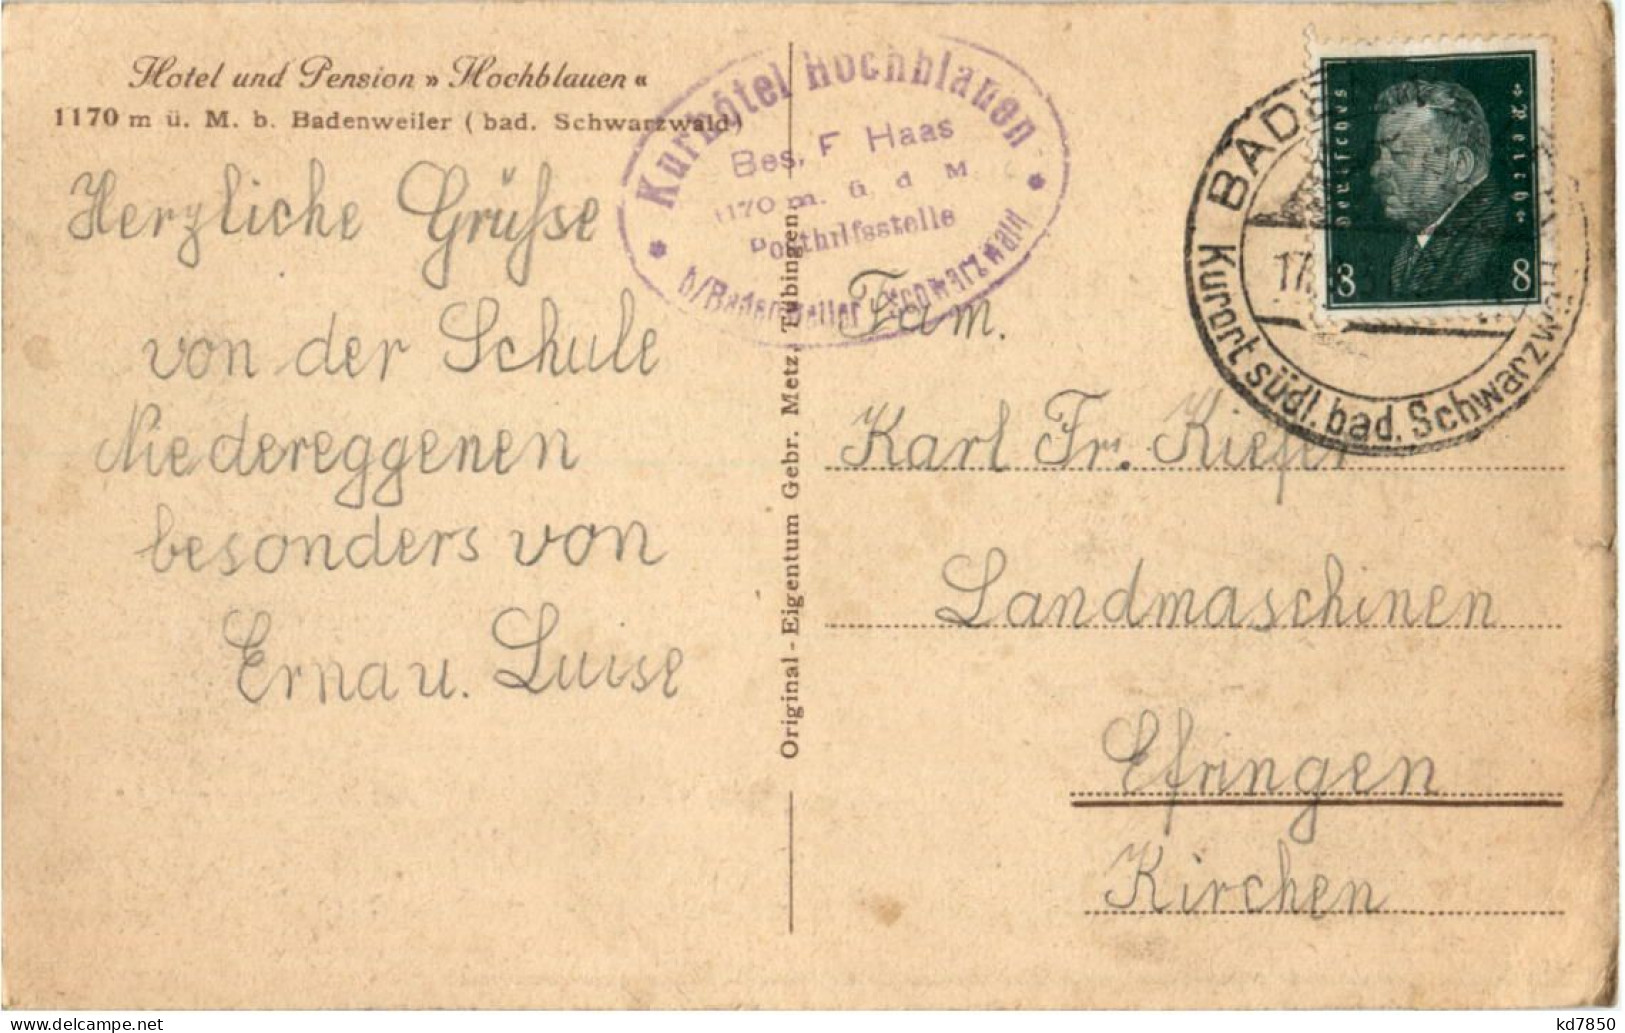 Hotel und Pension » Hochblauen «
1170 m ü. M. b. Badenweiler ( bad. Schwarzwald)
Herzliche Grüsse
von der Schule
Niedereggenen
besonders von
Erna u. Luise
Kurhôtel Hochblauen
Bes. F Haas
1170 m. ü d M
Posthilfsstelle
b/Badenweiler Schwarzwald
Original - Eigentum Gebr. Metz, Tübingen.
Deutsches Reich
8 8
17.
Kurort südl. bad. Schwarzwald
Fam.
Karl Fr. Kiefer
Landmaschinen
Efringen
Kirchen
kd7850